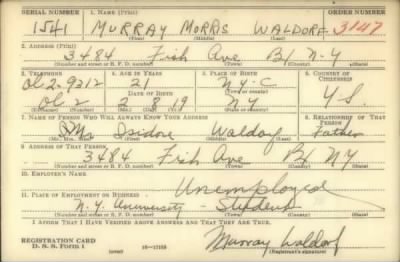 SERIAL NUMBER 1. NAME (Print) ORDER NUMBER
1541 MURRAY MORRIS WALDORF 3147
(First) (Middle) (Last)
2. ADDRESS (Print)
3484 Fish Ave Bx N-Y
(Number and street or R. F. D. number) (Town) (County) (State)
3. TELEPHONE 4. AGE IN YEARS 5. PLACE OF BIRTH 6. COUNTRY OF CITIZENSHIP
Ol 2-9312 21 N.Y.C.
DATE OF BIRTH (Town or county)
Ol 2 2 8 19 NY U.S.
(Exchange) (Number) (Mo.) (Day) (Yr.) (State or country)
7. NAME OF PERSON WHO WILL ALWAYS KNOW YOUR ADDRESS 8. RELATIONSHIP OF THAT PERSON
Mr. Isidore Waldorf Father
(Mr., Mrs., Miss) (First) (Middle) (Last)
9. ADDRESS OF THAT PERSON
3484 Fish Ave Bx NY
(Number and street or R. F. D. number) (Town) (County) (State)
10. EMPLOYER'S NAME
Unemployed
11. PLACE OF EMPLOYMENT OR BUSINESS
N.Y. University - Student
(Number and street or R. F. D. number) (Town) (County) (State)
I AFFIRM THAT I HAVE VERIFIED ABOVE ANSWERS AND THAT THEY ARE TRUE.
REGISTRATION CARD Murray Waldorf
D. S. S. Form 1 (over) (Registrant's signature)